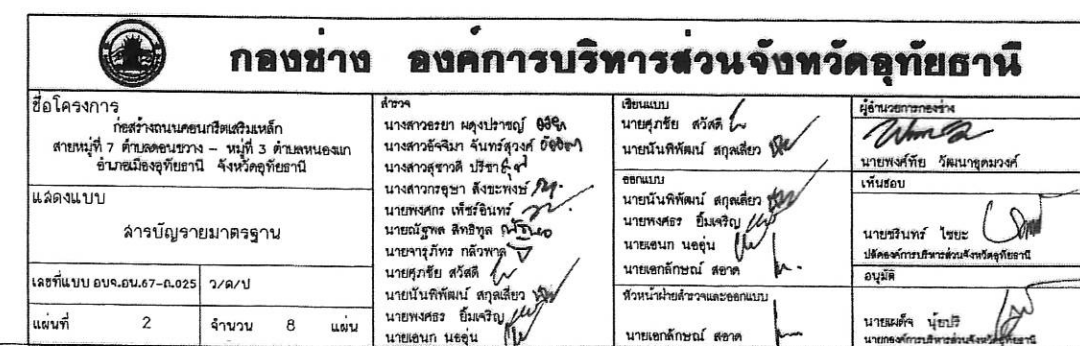 กองช่าง องค์การบริหารส่วนจังหวัดอุทัยธานี
ชื่อโครงการ
ก่อสร้างถนนคอนกรีตเสริมเหล็ก
สายหมู่ที่ 7 ตำบลดอนขวาง – หมู่ที่ 3 ตำบลหนองแก
อำเภอเมืองอุทัยธานี จังหวัดอุทัยธานี
แสดงแบบ
สารบัญรายมาตรฐาน
เลขที่แบบ อบจ.อน.67-ถ.025
ว/ด/ป
แผ่นที่ 2 จำนวน 8 แผ่น
สำรวจ
นางสาวอรยา ผดุงปราชญ์
นางสาวอัจจิมา จันทร์สุวงศ์
นางสาวสุชาวดี ปรีชา
นางสาวกรอุษา สังขะพงษ์
นายพงศกร เพ็ชร์อินทร์
นายณัฐพล สิทธิทูล
นายจารุภัทร กลัวพาล
นายศุภชัย สวัสดี
นายนันพิพัฒน์ สกุลเสียว
นายพงศธร ยิ้มเจริญ
นายเอนก นออุ่น
เขียนแบบ
นายศุภชัย สวัสดี
นายนันพิพัฒน์ สกุลเสียว
ออกแบบ
นายนันพิพัฒน์ สกุลเสียว
นายพงศธร ยิ้มเจริญ
นายเอนก นออุ่น
นายเอกลักษณ์ สอาด
หัวหน้าฝ่ายสำรวจและออกแบบ
นายเอกลักษณ์ สอาด
ผู้อำนวยการกองช่าง
นายพงศ์ทัย วัฒนาอุดมวงศ์
เห็นชอบ
นายชรินทร์ ไชยะ
ปลัดองค์การบริหารส่วนจังหวัดอุทัยธานี
อนุมัติ
นายเผด็จ นุ้ยปรี
นายกองค์การบริหารส่วนจังหวัดอุทัยธานี